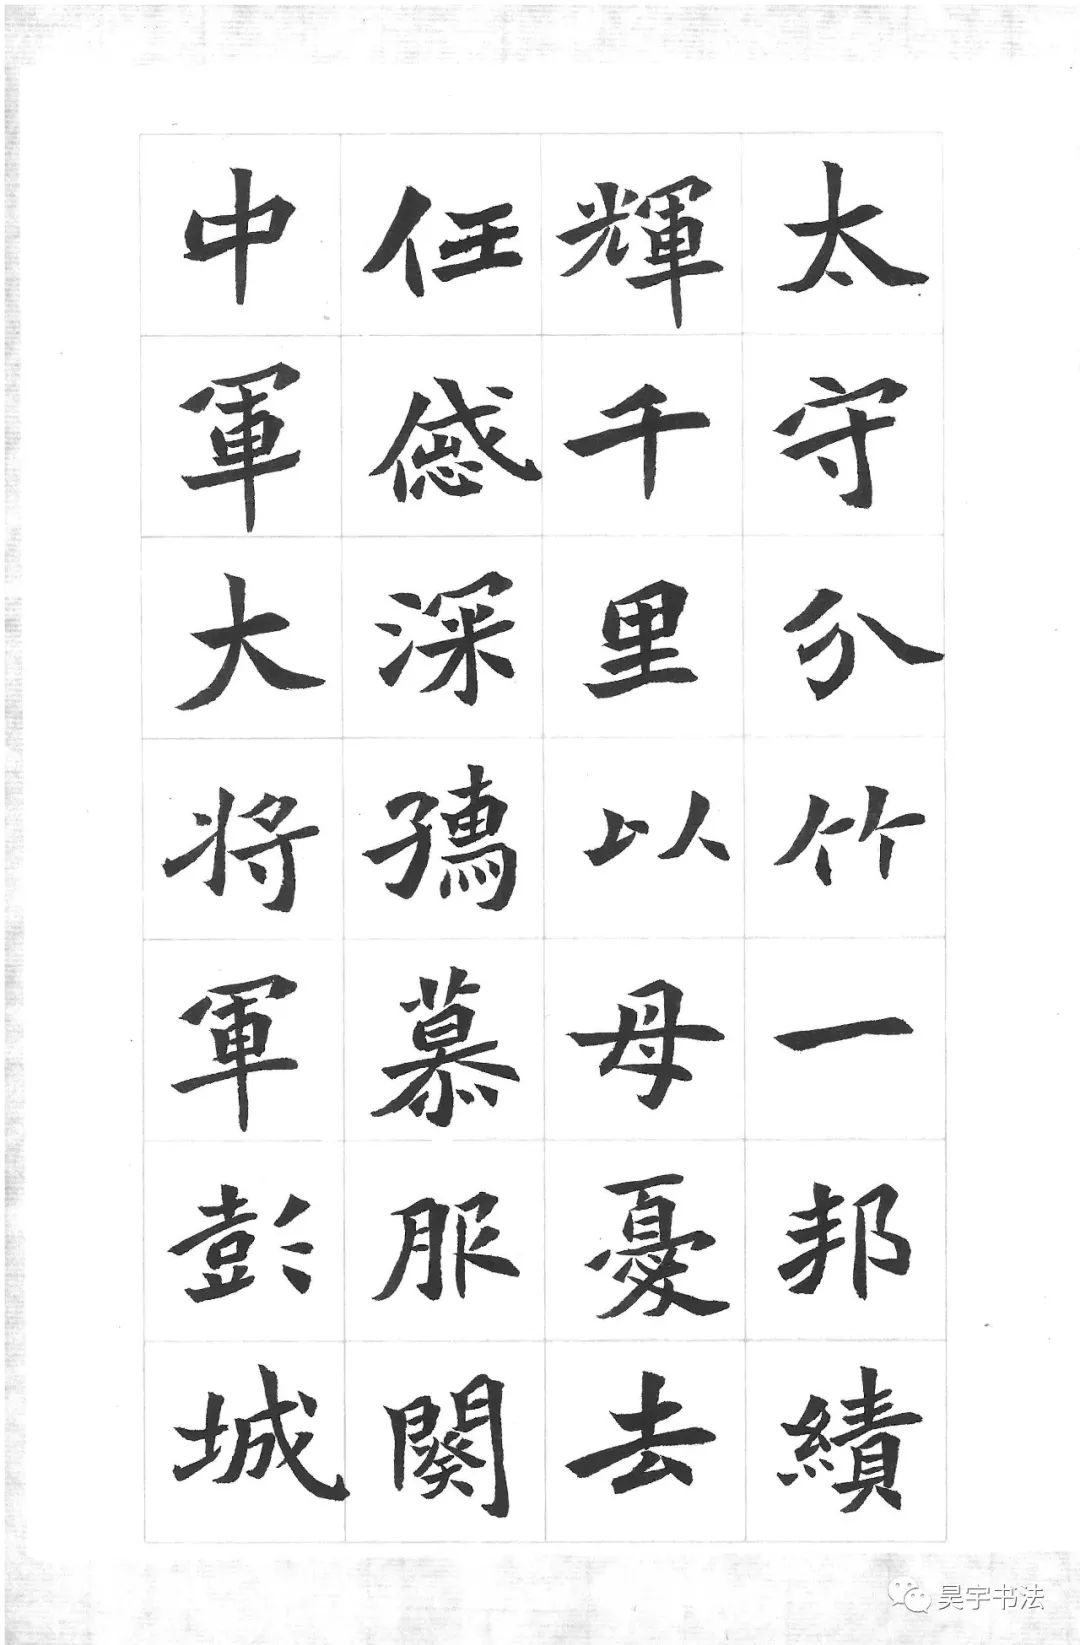 太守分竹一邦績
輝千里以母憂去
任感深孺慕服闋
中軍大將軍彭城
昊宇书法